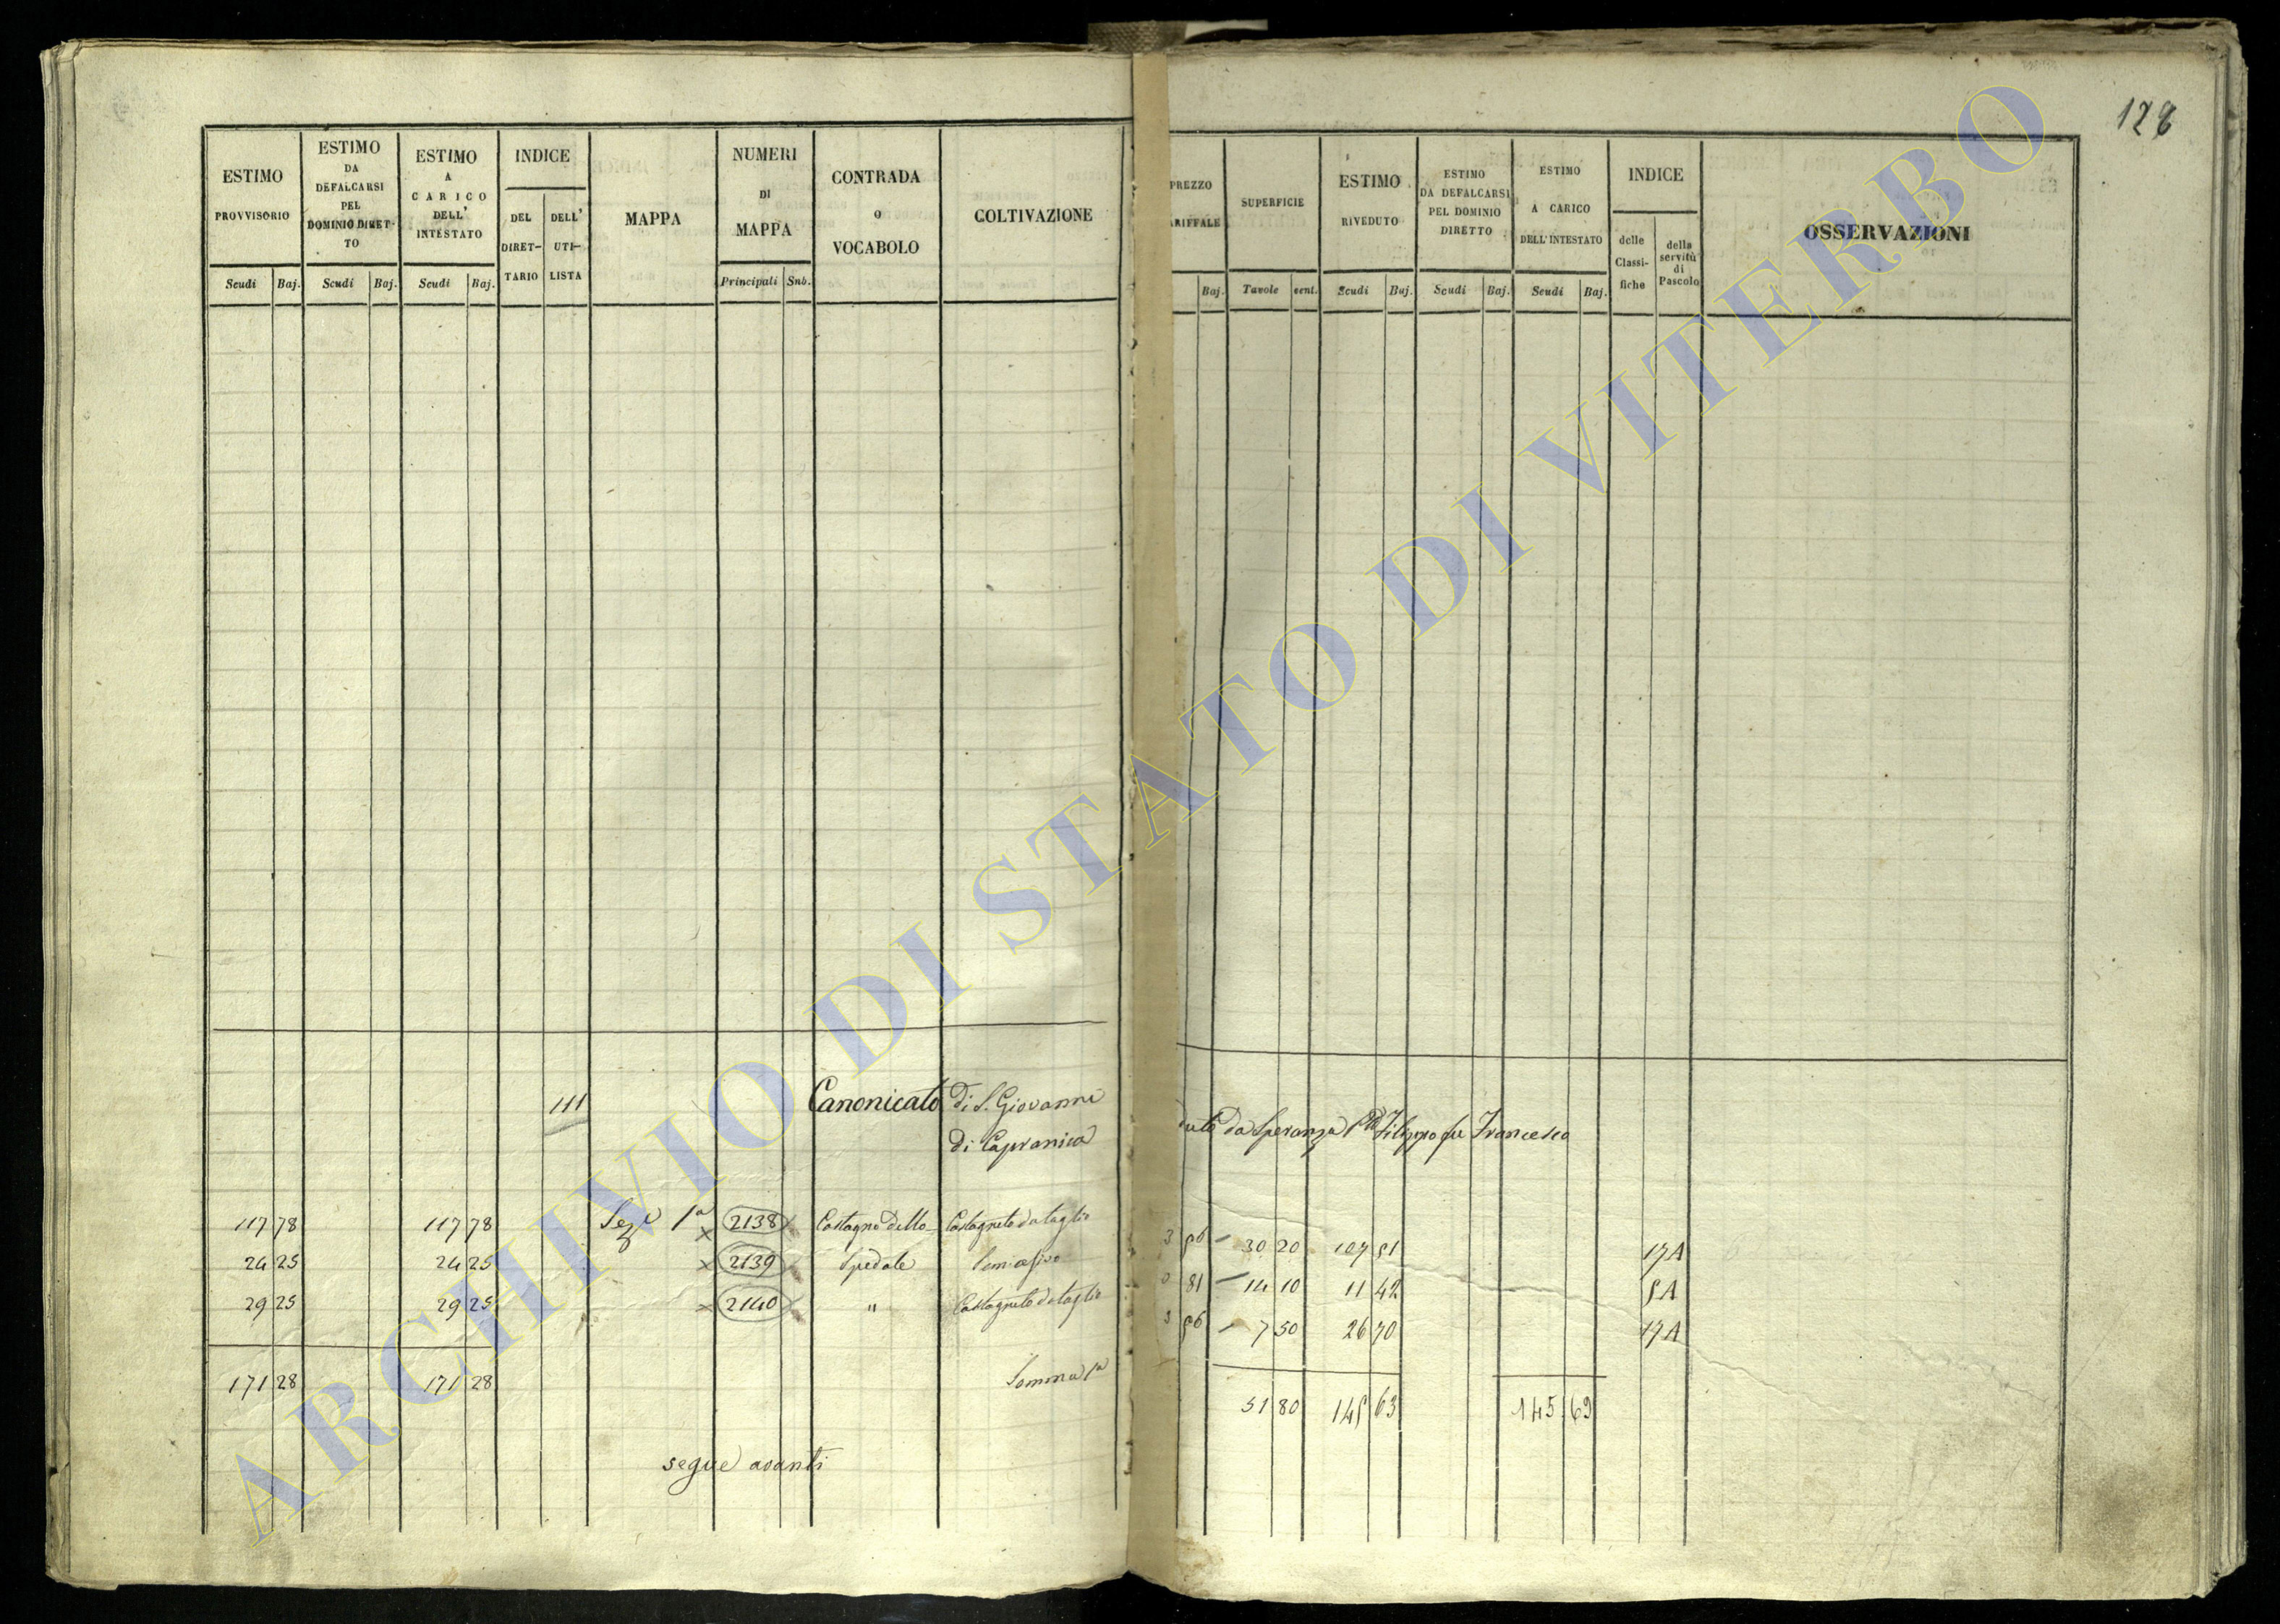 128
ESTIMO PROVVISORIO
ESTIMO DA DEFALCARSI PEL DOMINIO DIRET-TO
ESTIMO A CARICO DELL' INTESTATO
INDICE
DEL DIRET-TARIO
DELL' UTI-LISTA
MAPPA
NUMERI DI MAPPA
CONTRADA O VOCABOLO
COLTIVAZIONE
PREZZO
ARIFFALE
SUPERFICIE
ESTIMO RIVEDUTO
ESTIMO DA DEFALCARSI PEL DOMINIO DIRETTO
ESTIMO A CARICO DELL'INTESTATO
INDICE
delle Classi-fiche
della servitù di Pascolo
OSSERVAZIONI
Scudi Baj. Scudi Baj. Scudi Baj. Principali Sub. Baj. Tavole cent. Scudi Baj. Scudi Baj. Scudi Baj.
111 Canonicato di S. Giovanni
di Capranica
duto da Speranza Filippo fu Francesco
117 78 117 78 Sez.e 1a 2138 Castagno dello Castagneto da taglio 3 56 30 20 107 51 17 A
24 25 24 25 2139 Spedale 0 81 14 10 11 42 5 A
29 25 29 25 2140 " Castagneto da taglio 3 56 7 50 26 70 17 A
171 28 171 28 Somma 1a 51 80 145 63 145 63
segue avanti
ARCHIVIO DI STATO DI VITERBO